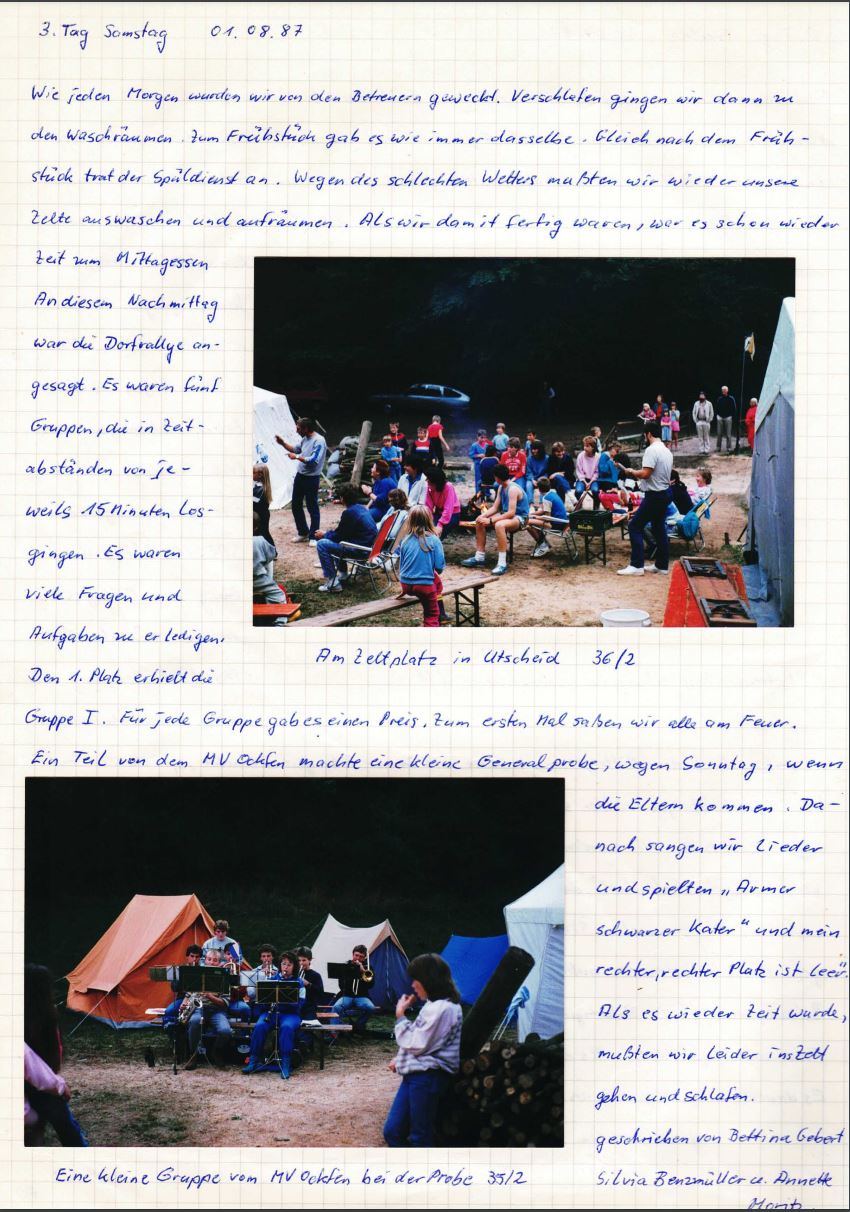 3. Tag Samstag 01.08.87
Wie jeden Morgen wurden wir von den Betreuern geweckt. Verschlafen gingen wir dann zu
den Waschräumen. Zum Frühstück gab es wie immer dasselbe. Gleich nach dem Früh-
stück trat der Spüldienst an. Wegen des schlechten Wetters mußten wir wieder unsere
Zelte auswaschen und aufräumen. Als wir damit fertig waren, war es schon wieder
Zeit zum Mittagessen
An diesem Nachmittag
war die Dorfrallye an-
gesagt. Es waren fünf
Gruppen, die in Zeit-
abständen von je-
weils 15 Minuten los-
gingen. Es waren
viele Fragen und
Aufgaben zu erledigen.
Den 1. Platz erhielt die
Am Zeltplatz in Utscheid 36/2
Gruppe I. Für jede Gruppe gab es einen Preis. Zum ersten Mal saßen wir alle am Feuer.
Ein Teil von dem MV Ockfen machte eine kleine Generalprobe, wegen Sonntag, wenn
die Eltern kommen. Da-
nach sangen wir Lieder
und spielten „Armer
schwarzer Kater" und mein
rechter, rechter Platz ist leer".
Als es wieder Zeit wurde,
mußten wir leider ins Zelt
gehen und schlafen.
geschrieben von Bettina Gebert
Silvia Benzmüller u. Annette
Moritz.
Eine kleine Gruppe vom MV Ockfen bei der Probe 35/2